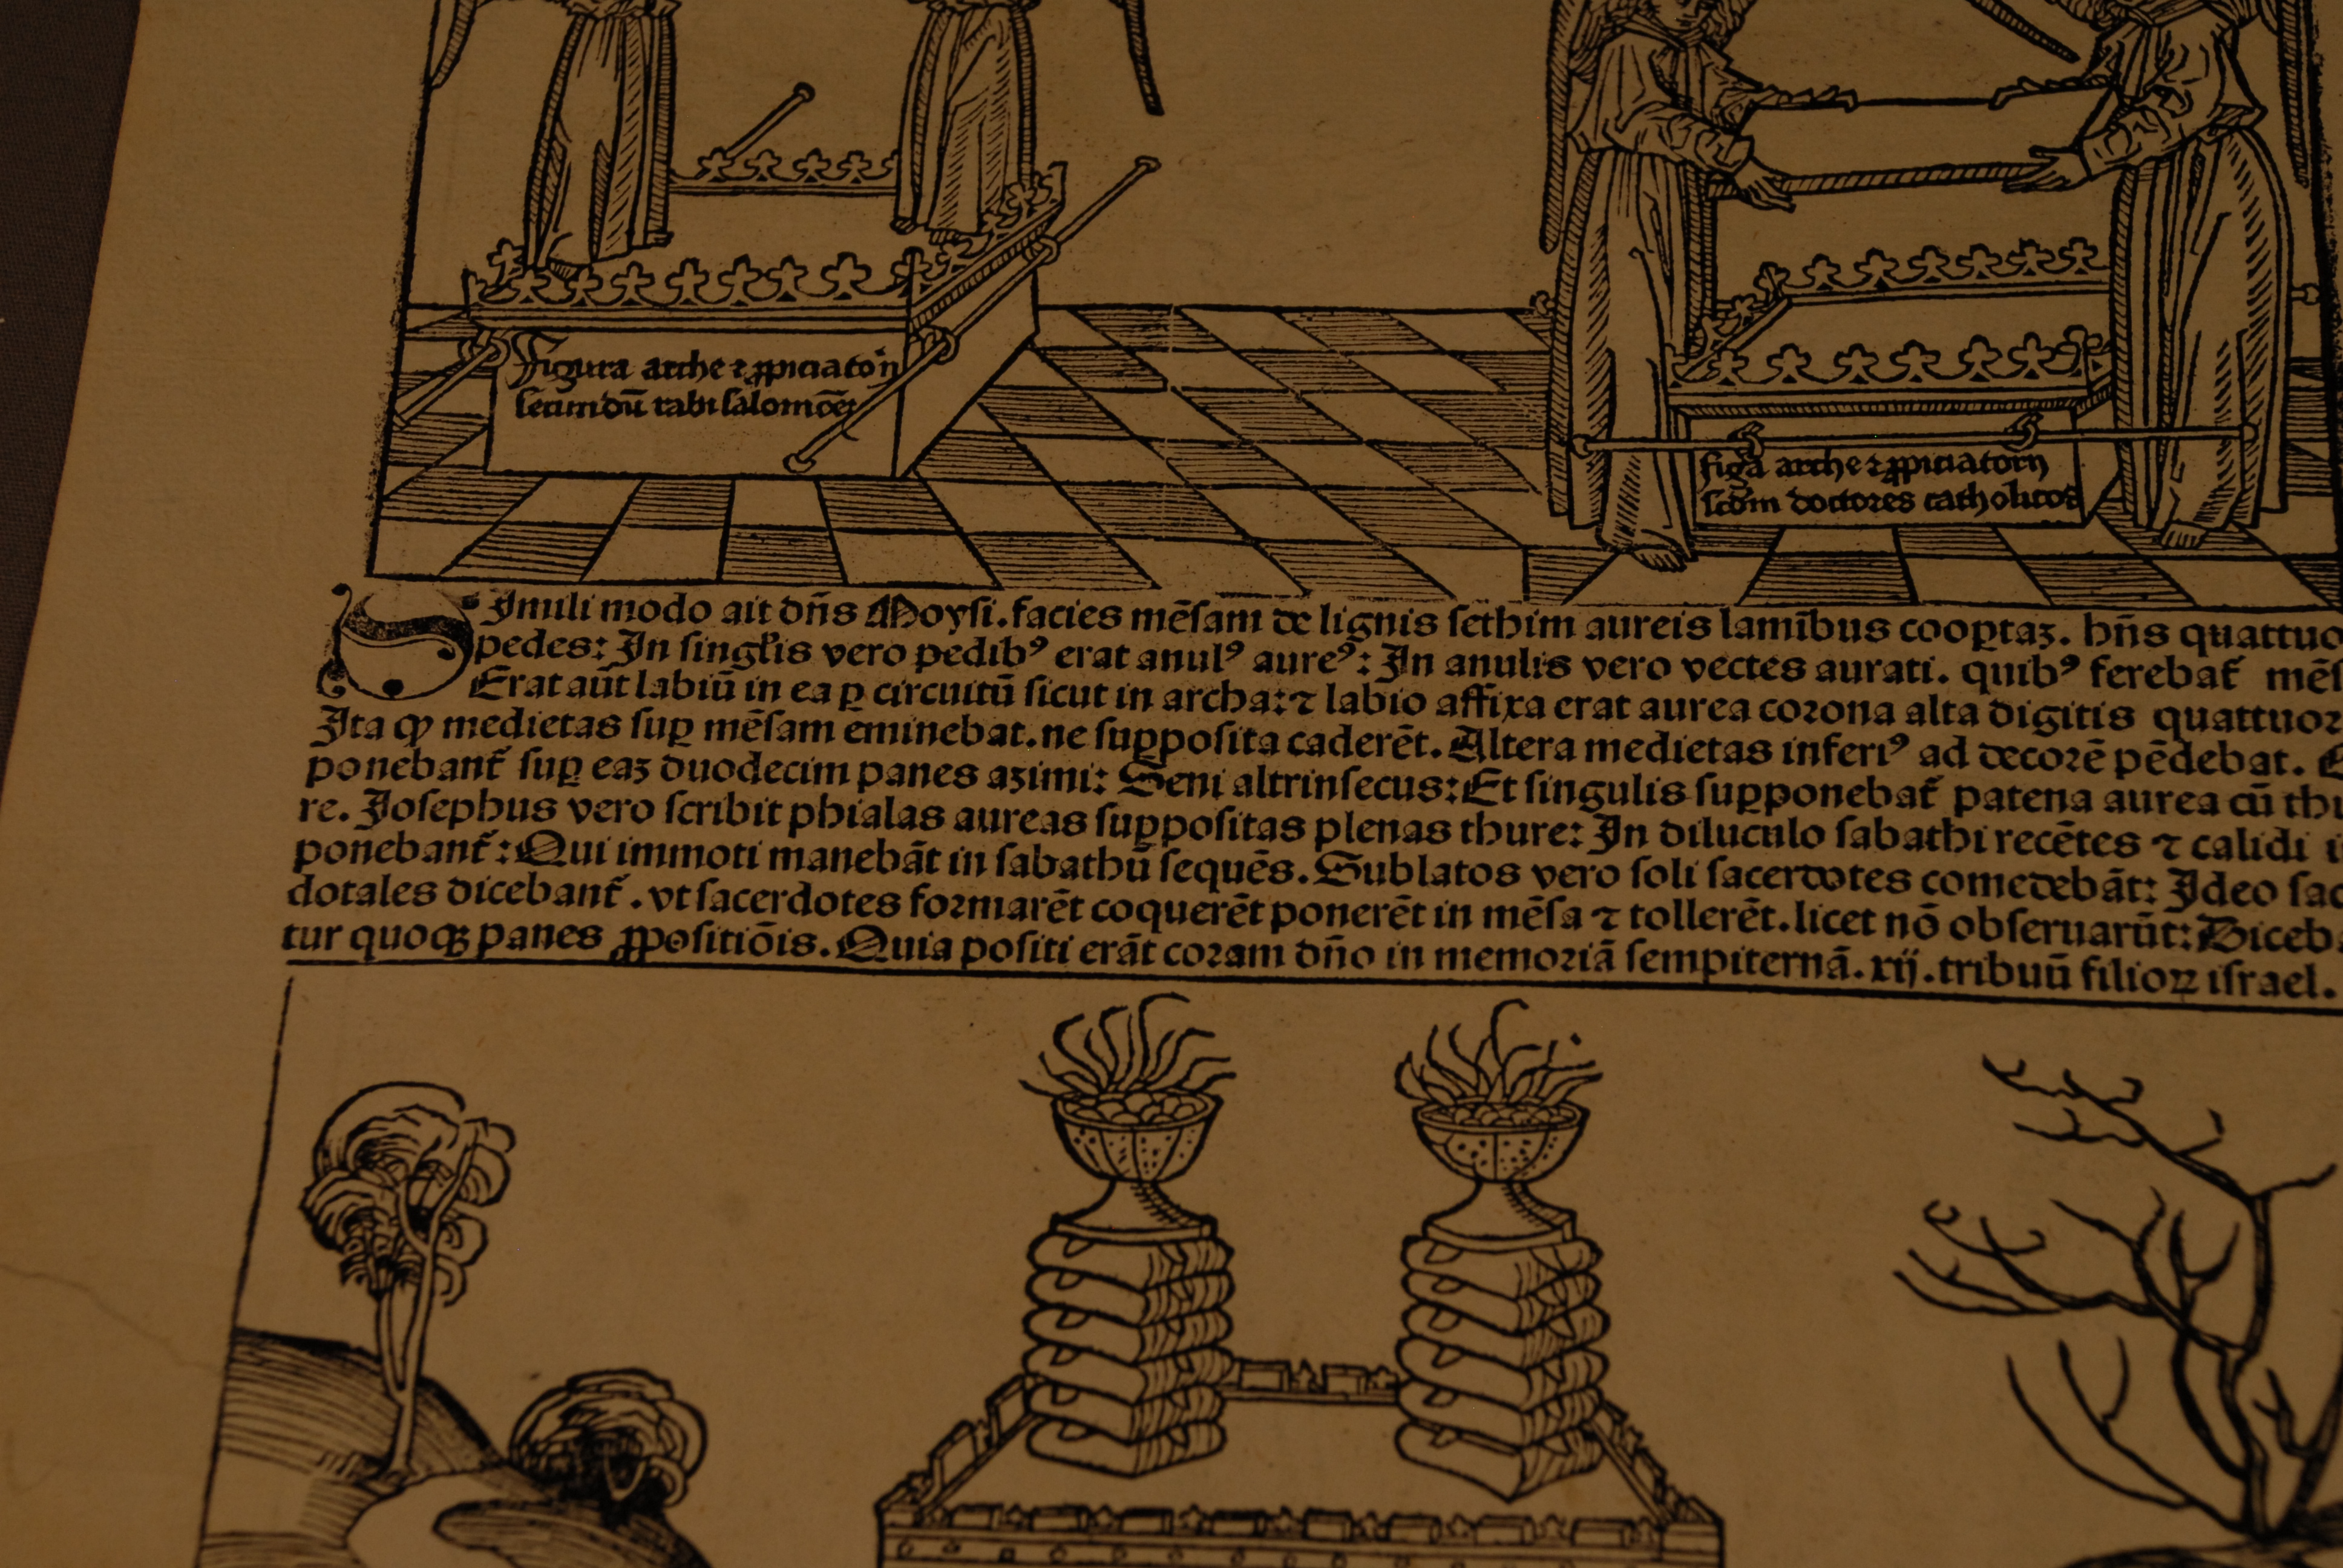 Figura arche ⁊ ꝓpiciatoꝝ
secundū rabi salomōeꝫ
figᵃ arche ⁊ ꝓpiciatoꝝ
scdm doctores catholicos
SImili modo ait dn̄s Moysi. facies mēsam de lignis sethim aureis lamībus cooꝑtaꝫ. hn̄s quattuo
pedes: In singl̓is vero pedibꝰ erat anulꝰ aureꝰ: In anulis vero vectes aurati. quibꝰ ferebat᷑ mēs
Erat aūt labiū in ea ꝑ circuitū sicut in archa: ⁊ labio affixa erat aurea corona alta digitis quattuor
Ita ꝙ medietas suꝑ mēsam eminebat. ne suꝑposita caderēt. Altera medietas inferiꝰ ad decorē pēdebat.
ponebant᷑ suꝑ eaꝫ duodecim panes azimi: Seni altrinsecus: Et singulis suꝑponebat᷑ patena aurea cū thu
re. Iosephus vero scribit phialas aureas suꝑpositas plenas thure: In diluculo sabathi recētes ⁊ calidi
ponebant᷑: Qui immoti manebāt in sabathū sequēs. Sublatos vero soli sacerdotes comedebāt: Ideo sac
dotales dicebant᷑. vt sacerdotes formarēt coquerēt ponerēt in mēsa ⁊ tollerēt. licet nō obseruarūt: Diceb
tur quoqꝫ panes ꝓpositiōis. Quia positi erāt coram dn̄o in memoriā sempiternā. xij. tribuū filioꝝ israel.